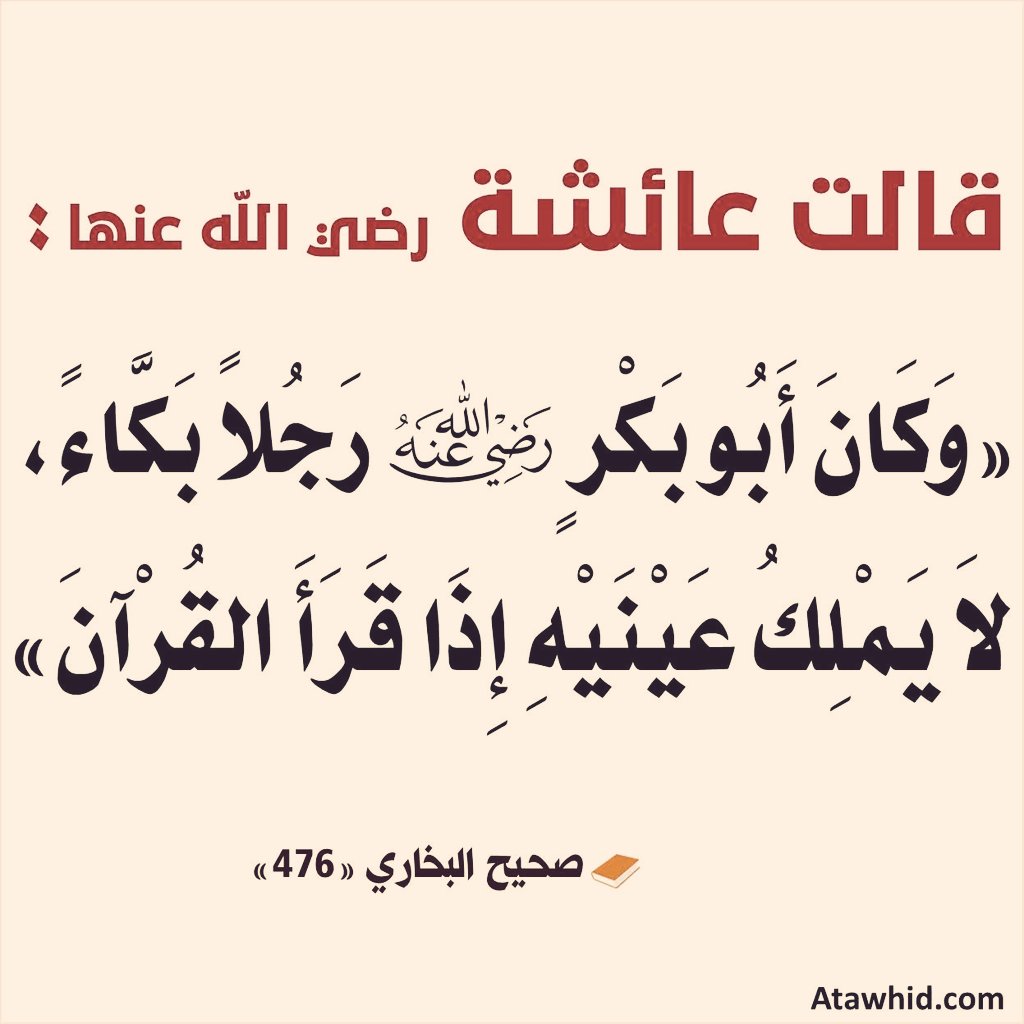 قالت عائشة رضي الله عنها :
«وَكَانَ أَبُو بَكْرٍ رَضِيَ اللَّهُ عَنْهُ رَجُلاً بَكَّاءً،
لاَ يَمْلِكُ عَيْنَيْهِ إِذَا قَرَأَ القُرْآنَ»
صحيح البخاري «476»
Atawhid.com